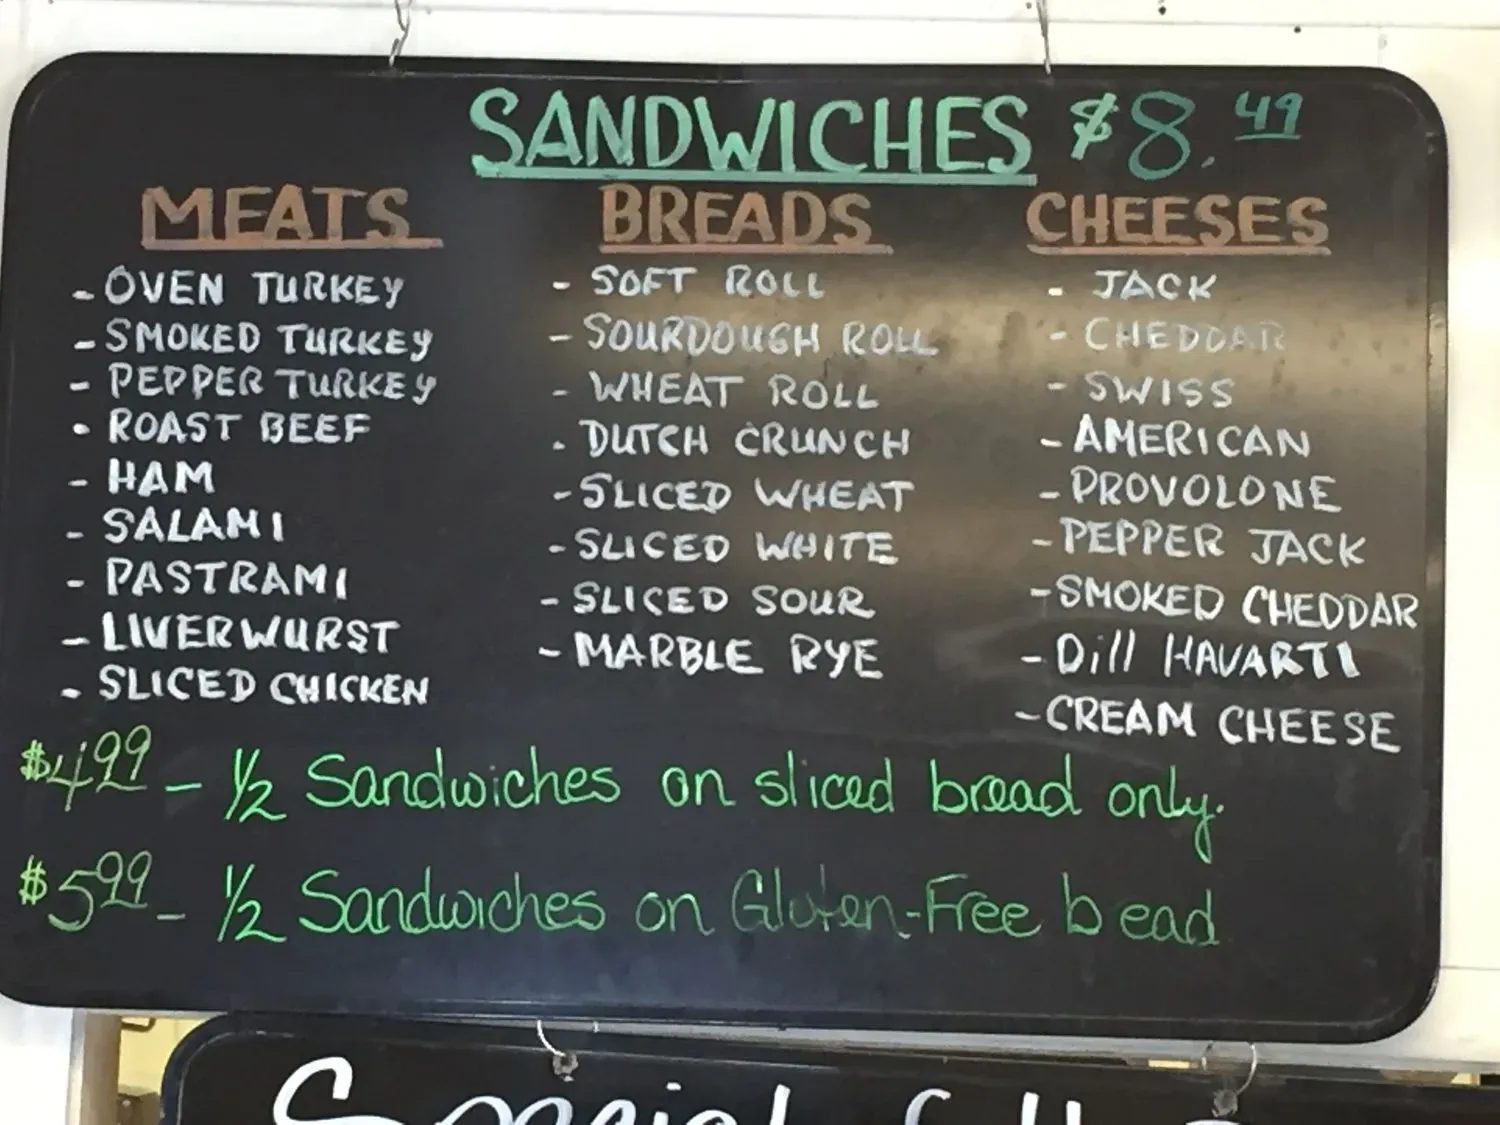 SANDWICHES $8.49
MEATS
- OVEN TURKEY
- SMOKED TURKEY
- PEPPER TURKEY
- ROAST BEEF
- HAM
- SALAMI
- PASTRAMI
- LIVERWURST
- SLICED CHICKEN
BREADS
- SOFT ROLL
- SOURDOUGH ROLL
- WHEAT ROLL
- DUTCH CRUNCH
- SLICED WHEAT
- SLICED WHITE
- SLICED SOUR
- MARBLE RYE
CHEESES
- JACK
- CHEDDAR
- SWISS
- AMERICAN
- PROVOLONE
- PEPPER JACK
- SMOKED CHEDDAR
- Dill HAVARTI
- CREAM CHEESE
$4.99 - 1/2 Sandwiches on sliced bread only.
$5.99 - 1/2 Sandwiches on Gluten-Free b ead